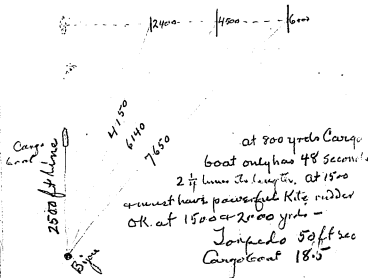 2400
4500
6000
4150
6140
7650
Cargo
boat
2500 ft line
Bijou
at 800 yrds Cargo
boat only has 48 seconds
2 1/4 times its length. at 1500
must have powerful Kite rudder
OK. at 1500 & 2000 yrds —
Torpedo 50 ft sec
Cargo boat 18.5